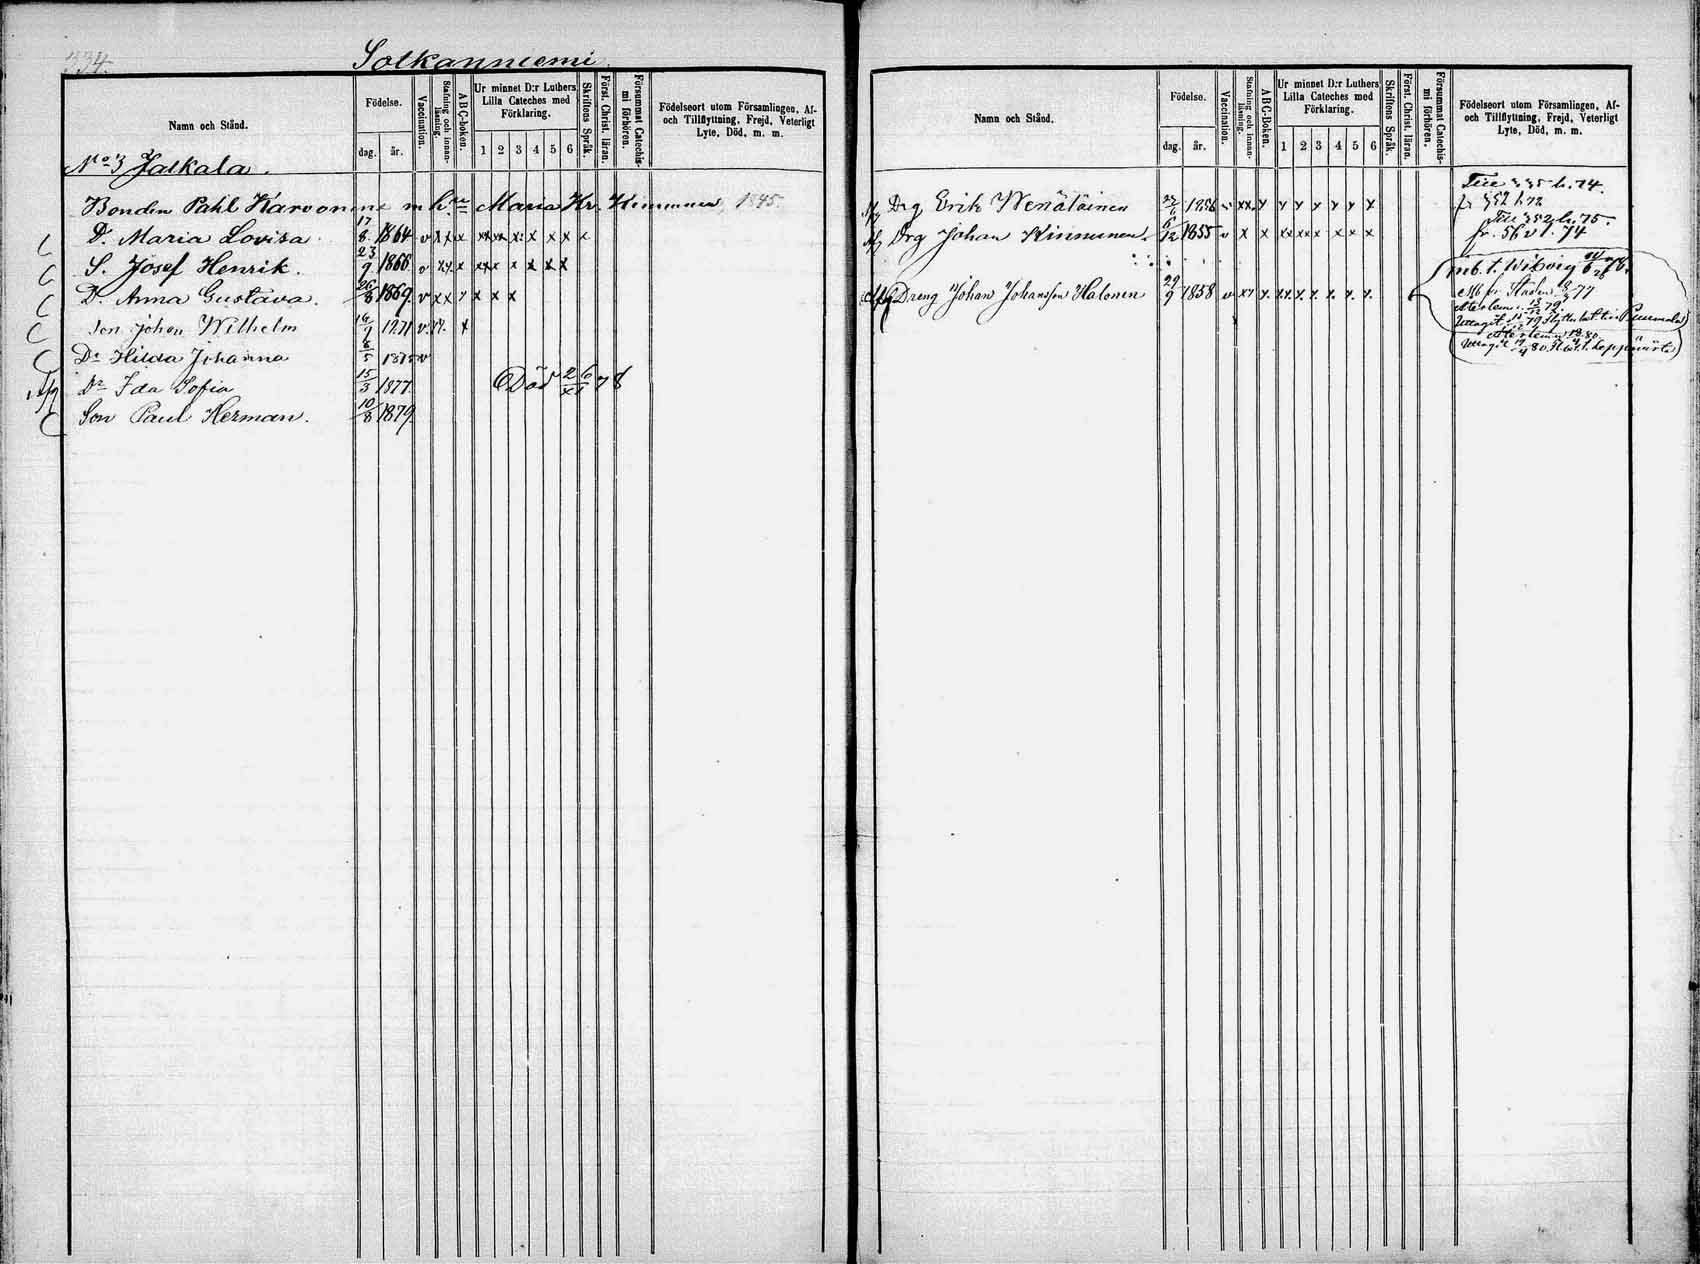 334.
Solkanniemi
Namn och Stånd.
Födelse.
dag. år.
Vaccination.
Stafning och innanläsning.
ABC-boken.
Ur minnet D:r Luthers Lilla Cateches med Förklaring.
1 2 3 4 5 6
Skriftens Språk.
Först. Christ. läran.
Försummat Catechismi förhören.
Födelseort utom Församlingen, Af- och Tillflyttning, Frejd, Veterligt Lyte, Död, m. m.
No 3 Jalkala.
Bonden Pahl Karvonen m h. Maria Kr. Kinnunen, 1845.
D. Maria Lovisa 17/8 1864 v x x x x x x x x x x
S. Josef Henrik. 23/9 1866 v x x x x x x x x x
D. Anna Gustava. 26/8 1869. v x x x x x x
Son Johan Wilhelm 16/9 1871 v x x x
Dr Hilda Johanna 6/5 1875 v
Dr Ida Sofia 15/3 1877 Död 26/XI 78
Son Paul Herman. 10/8 1879.
Namn och Stånd.
Födelse.
dag. år.
Vaccination.
Stafning och innanläsning.
ABC-Boken.
Ur minnet D:r Luthers Lilla Cateches med Förklaring.
1 2 3 4 5 6
Skriftens Språk.
Först. Christ. läran.
Försummat Catechismi förhören.
Födelseort utom Församlingen, Af- och Tillflyttning, Frejd, Veterligt Lyte, Död, m. m.
Drg Erik Wenäläinen 1856 v x x x x x x x x x
fr 352 h. 72
Drg Johan Kinnunen 6/12 1855 v x x x x x x x x
352 h. 75.
fr. 56 v t. 74
Dreng Johan Johansson Halonen 29/9 1858 v x x x x x x x x x
mb. t. Wiborg
Mb fr. Staden 77